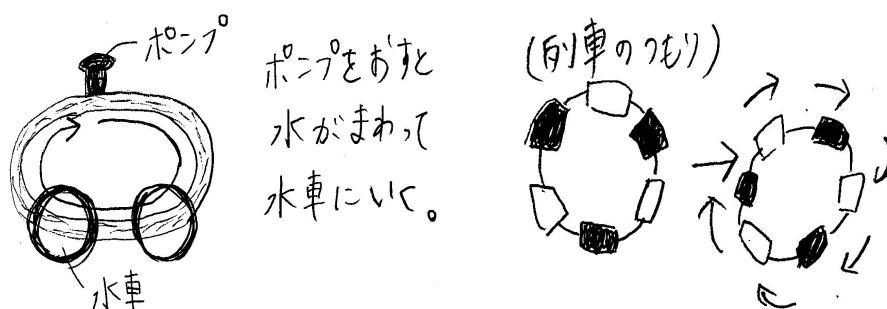 ポンプ
水車
ポンプをおすと
水がまわって
水車にいく。
(列車のつもり)